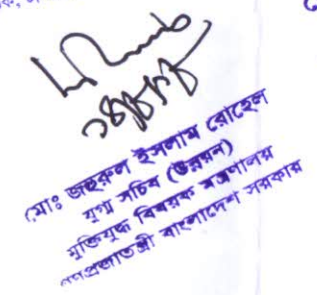 মোঃ জহুরুল ইসলাম রোহেল
যুগ্ম সচিব (উন্নয়ন)
মুক্তিযুদ্ধ বিষয়ক মন্ত্রণালয়
গণপ্রজাতন্ত্রী বাংলাদেশ সরকার